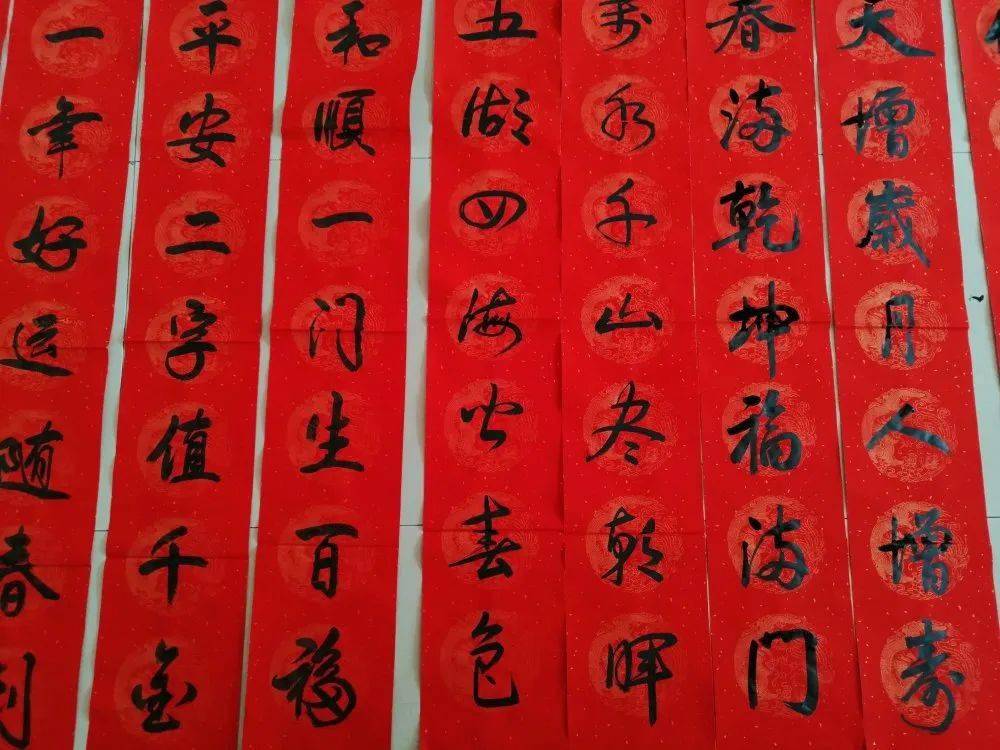 天增歲月人增寿
春满乾坤福满門
萬水千山尽朝晖
五湖四海皆春色
和順一门生百福
平安二字值千金
一年好运随春到